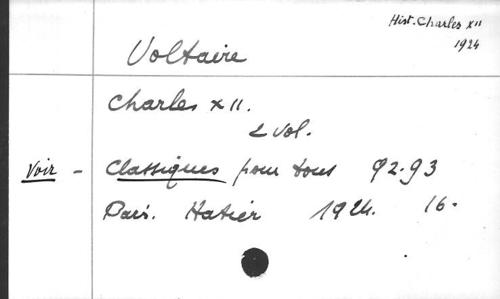 Hist. Charles XII
1924
Voltaire
Charles XII.
2 vol.
Voir - Classiques pour tous 92-93
Paris. Hatier 1924. 16-